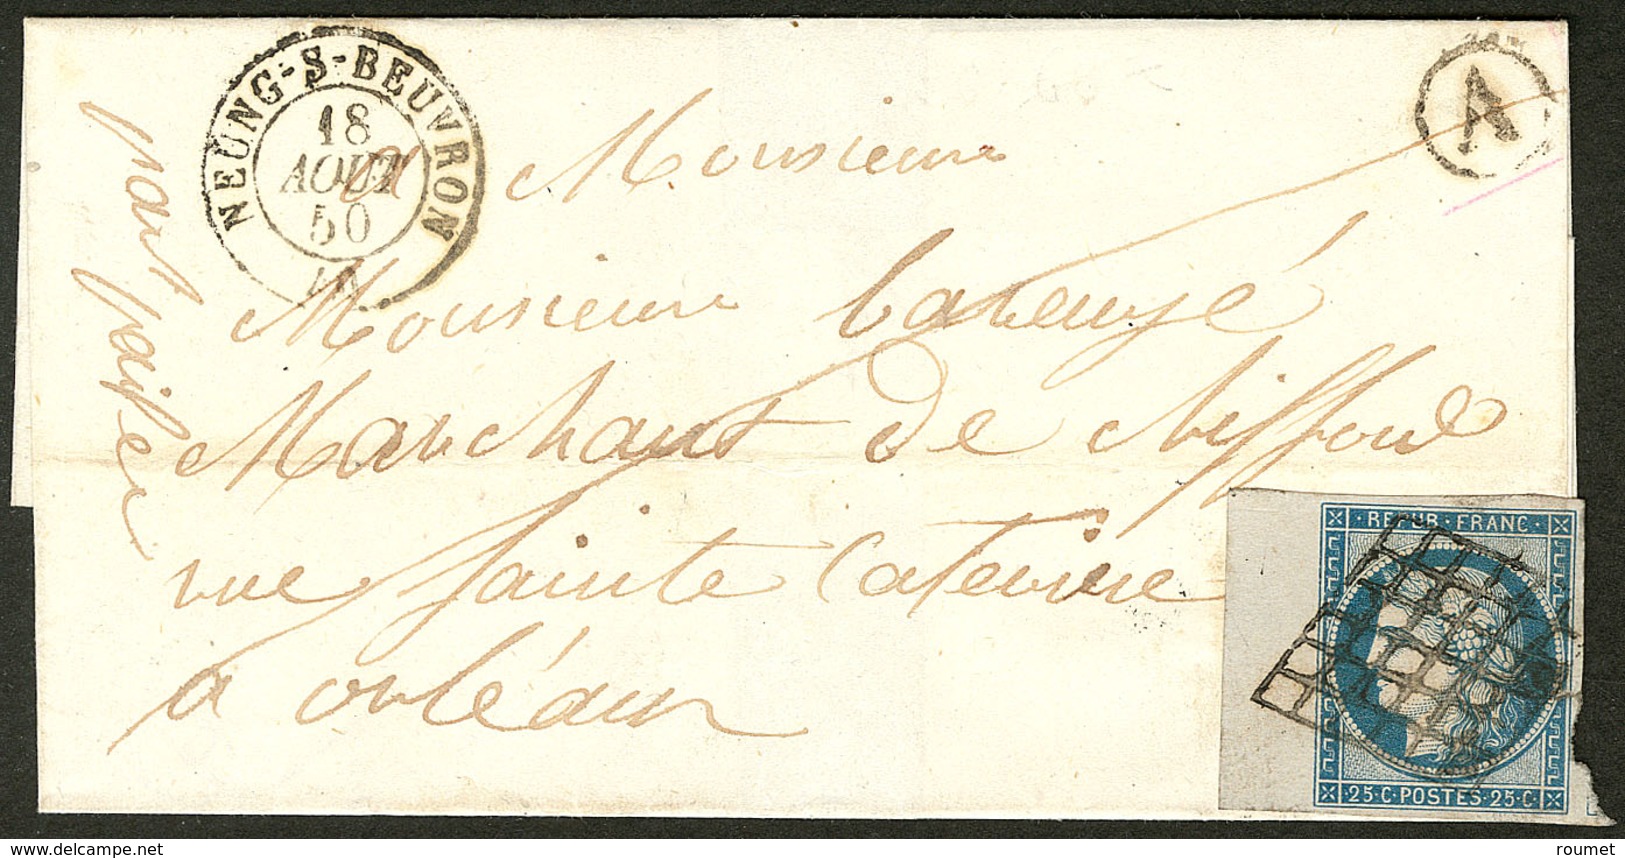 NEUNG-S-BEUVRON
18
AOUT
50
A
a Monsieur
Monsieur
Marchant de chiffons
rue Sainte Caterine
a orléans
par papier
REPUB·FRANC·
25·C·POSTES·25·C·
delcampe.net
roumet